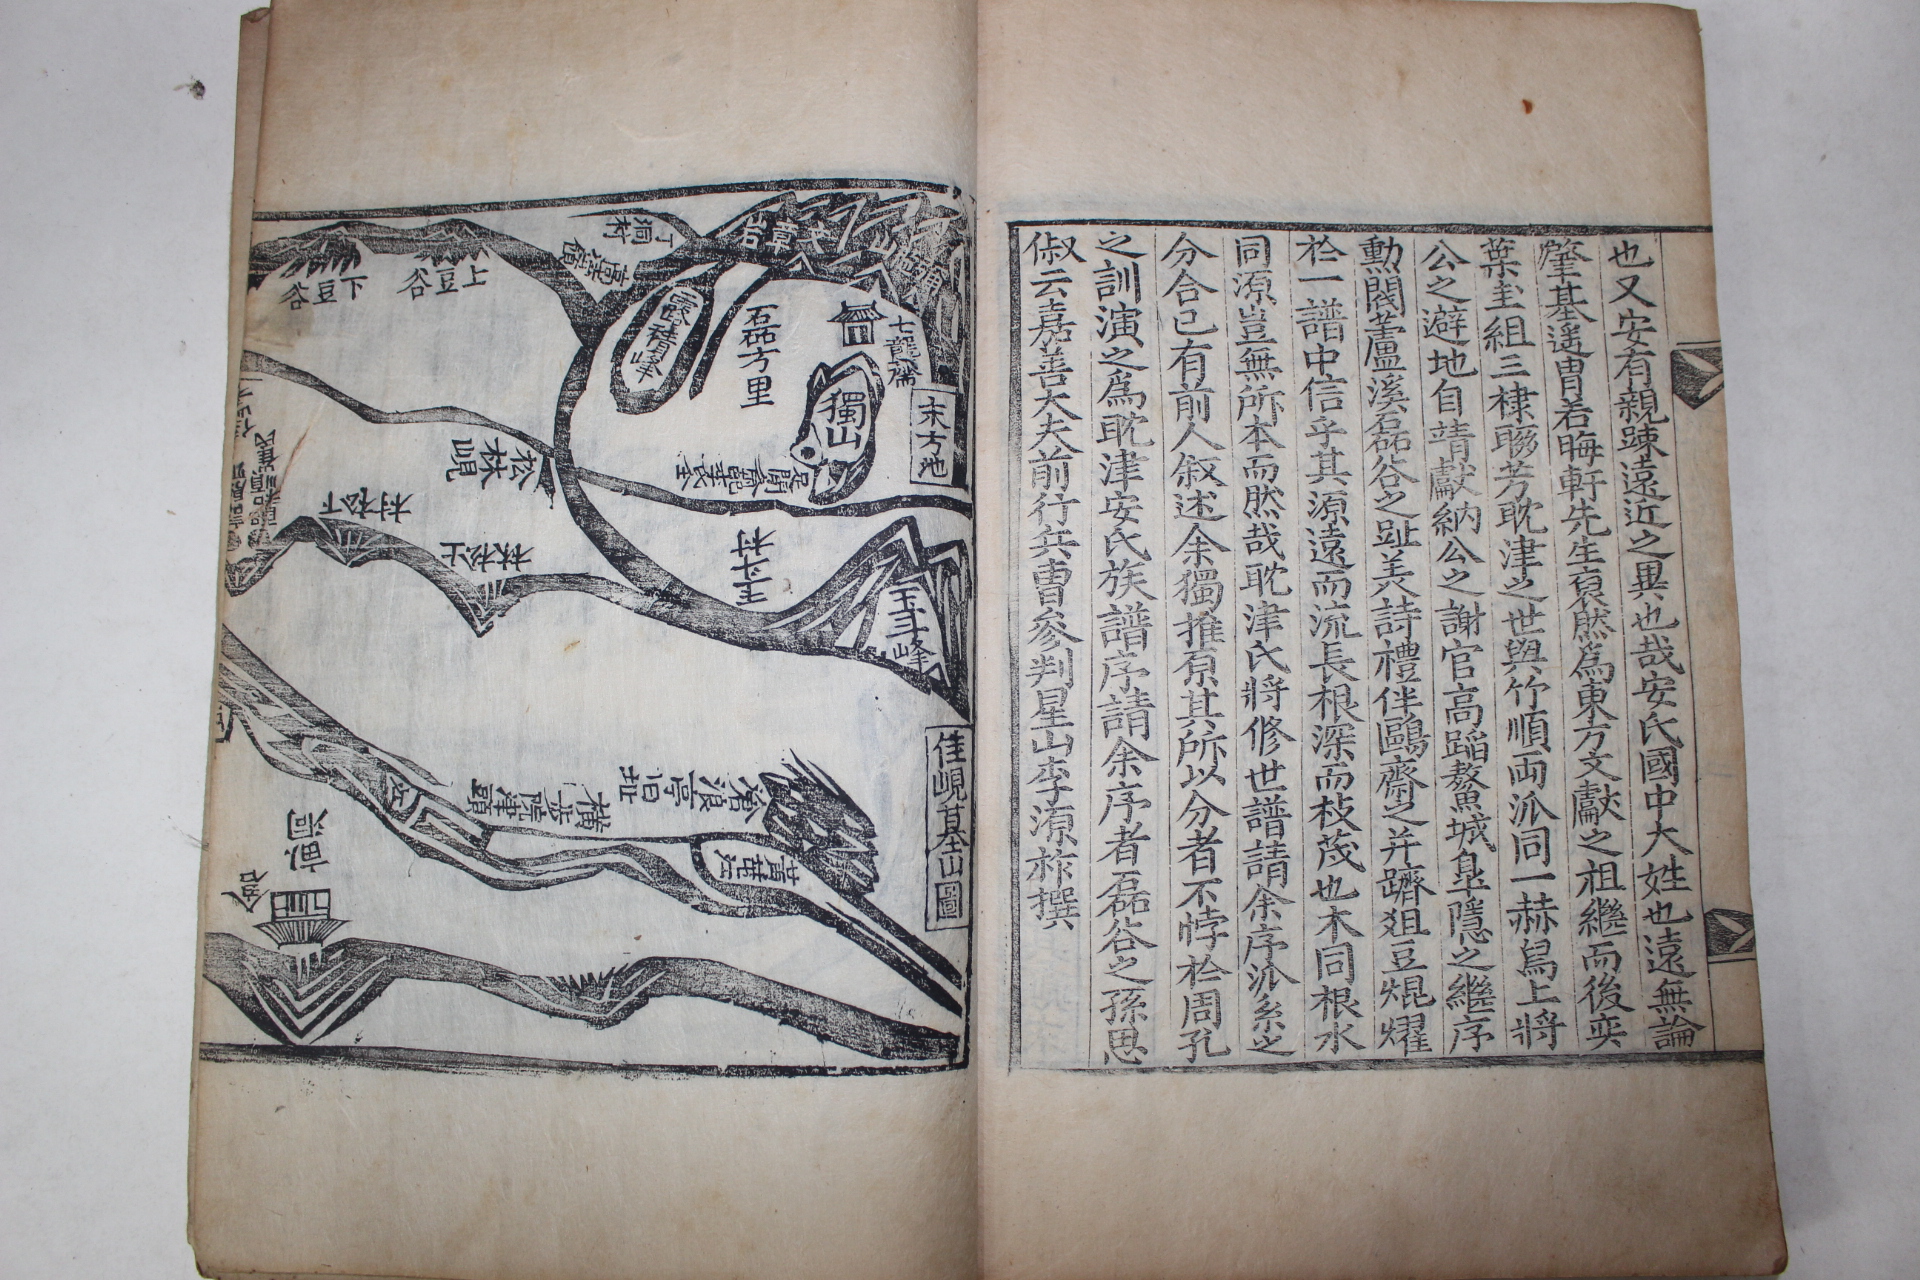 也又安有親踈遠近之異也哉安氏國中大姓也遠無論
肇基遙胄若晦軒先生裒然爲東方文獻之祖繼而後奕
葉圭組三棣聯芳耽津之世與竹順兩派同一赫舃上將
公之避地自靖獻納公之謝官高蹈鰲城臯隱之繼序
勳閥蘆溪磊谷之趾美詩禮伴鷗齋之并躋俎豆焜燿
於一譜中信乎其源遠而流長根深而枝茂也木同根水
同源豈無所本而然哉耽津氏將修世譜請余序派系之
分合已有前人叙述余獨推原其所以分者不悖於周孔
之訓演之爲耽津安氏族譜序請余序者磊谷之孫思
俶云嘉善大夫前行兵曹參判星山李源祚撰
佳峴基山圖
末方地
七龍齋
獨山
石磊方里
霞積峰
玉斗村
玉斗峰
松林峴
上豆谷
下豆谷
村松下
林松上
滄浪亭旧址
黃菴江
江